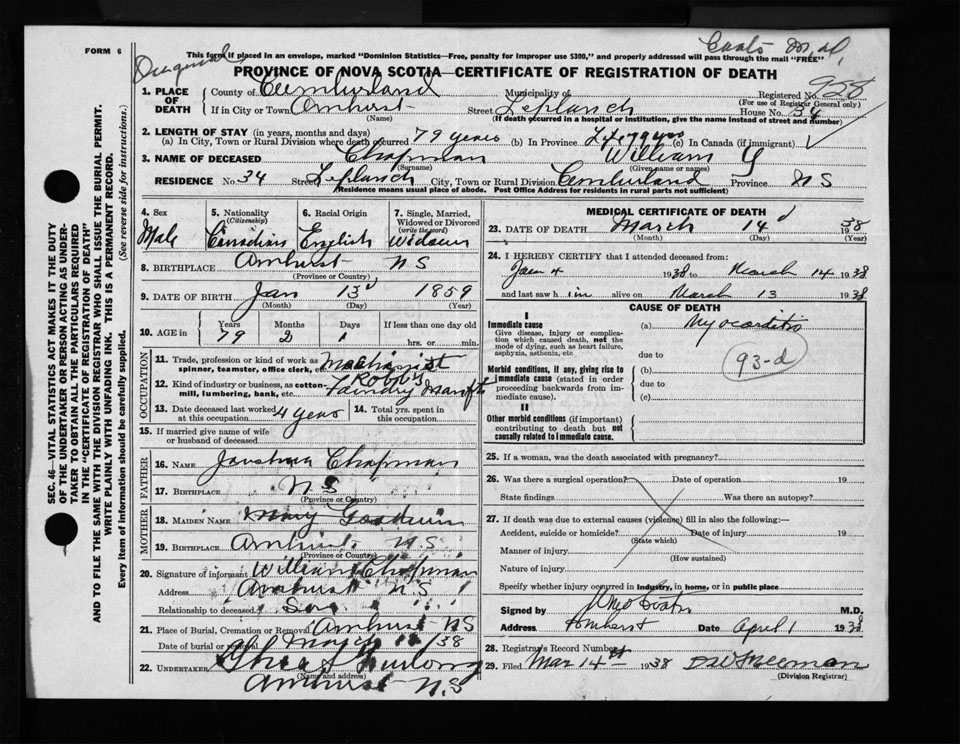 FORM 6
This form if placed in an envelope, marked "Dominion Statistics—Free, penalty for improper use $300," and properly addressed will pass through the mail "FREE"
PROVINCE OF NOVA SCOTIA—CERTIFICATE OF REGISTRATION OF DEATH
1. PLACE OF DEATH
County of Cumberland Municipality of Registered No. 958
(For use of Registrar General only)
If in City or Town Amherst Street Leplanch House No. 34
(Name) (If death occurred in a hospital or institution, give the name instead of street and number)
2. LENGTH OF STAY (in years, months and days)
(a) In City, Town or Rural Division where death occurred 79 years (b) In Province Life 79 yrs (c) In Canada (if immigrant)
3. NAME OF DECEASED Chapman William Y
(Surname) (Given name or names)
RESIDENCE No. 34 Street Leplanch City, Town or Rural Division Cumberland Province NS
(Residence means usual place of abode. Post Office Address for residents in rural parts not sufficient)
4. Sex
Male
5. Nationality
(Citizenship)
Canadian
6. Racial Origin
English
7. Single, Married, Widowed or Divorced
(write the word)
Widower
8. BIRTHPLACE Amherst NS
(Province or Country)
9. DATE OF BIRTH Jan 13 1859
(Month) (Day) (Year)
10. AGE in
Years Months Days If less than one day old
79 2 1 hrs. or min.
OCCUPATION
11. Trade, profession or kind of work as spinner, teamster, office clerk, etc. Machinist
12. Kind of industry or business, as cotton-mill, lumbering, bank, etc. Robb's Foundry
13. Date deceased last worked at this occupation 4 years
14. Total yrs. spent in this occupation
15. If married give name of wife or husband of deceased
FATHER
16. NAME Chapman
17. BIRTHPLACE NS
(Province or Country)
MOTHER
18. MAIDEN NAME Mary Goodwin
19. BIRTHPLACE Amherst NS
(Province or Country)
20. Signature of informant William Chapman
Address Amherst NS
Relationship to deceased Son
21. Place of Burial, Cremation or Removal Amherst NS
Date of burial or removal March 1938
22. UNDERTAKER Furlong
(Name and address)
Amherst N.S
MEDICAL CERTIFICATE OF DEATH
23. DATE OF DEATH March 14 1938
(Month) (Day) (Year)
24. I HEREBY CERTIFY that I attended deceased from:
Jan 4 1938 to March 14 1938
and last saw h im alive on March 13 1938
CAUSE OF DEATH
I
Immediate cause
Give disease, injury or complication which caused death, not the mode of dying, such as heart failure, asphyxia, asthenia, etc
(a) Myocarditis
93-d
due to
Morbid conditions, if any, giving rise to immediate cause (stated in order proceeding backwards from immediate cause).
(b)
due to
(c)
II
Other morbid conditions (if important) contributing to death but not causally related to immediate cause.
25. If a woman, was the death associated with pregnancy?
26. Was there a surgical operation? Date of operation 19
State findings Was there an autopsy?
27. If death was due to external causes (violence) fill in also the following:—
Accident, suicide or homicide? Date of injury 19
(State which)
Manner of injury
(How sustained)
Nature of injury
Specify whether injury occurred in industry, in home, or in public place
Signed by M.D.
Address Amherst Date April 1 1938
28. Registrar's Record Number
29. Filed Mar 14th 1938 Freeman
(Division Registrar)
SEC. 46—VITAL STATISTICS ACT MAKES IT THE DUTY
OF THE UNDERTAKER OR PERSON ACTING AS UNDER-
TAKER TO OBTAIN ALL THE PARTICULARS REQUIRED
IN THE "CERTIFICATE OF REGISTRATION OF DEATH"
AND TO FILE THE SAME WITH THE DIVISION REGISTRAR WHO SHALL ISSUE THE BURIAL PERMIT.
WRITE PLAINLY WITH UNFADING INK. THIS IS A PERMANENT RECORD.
Every item of information should be carefully supplied. (See reverse side for instructions.)